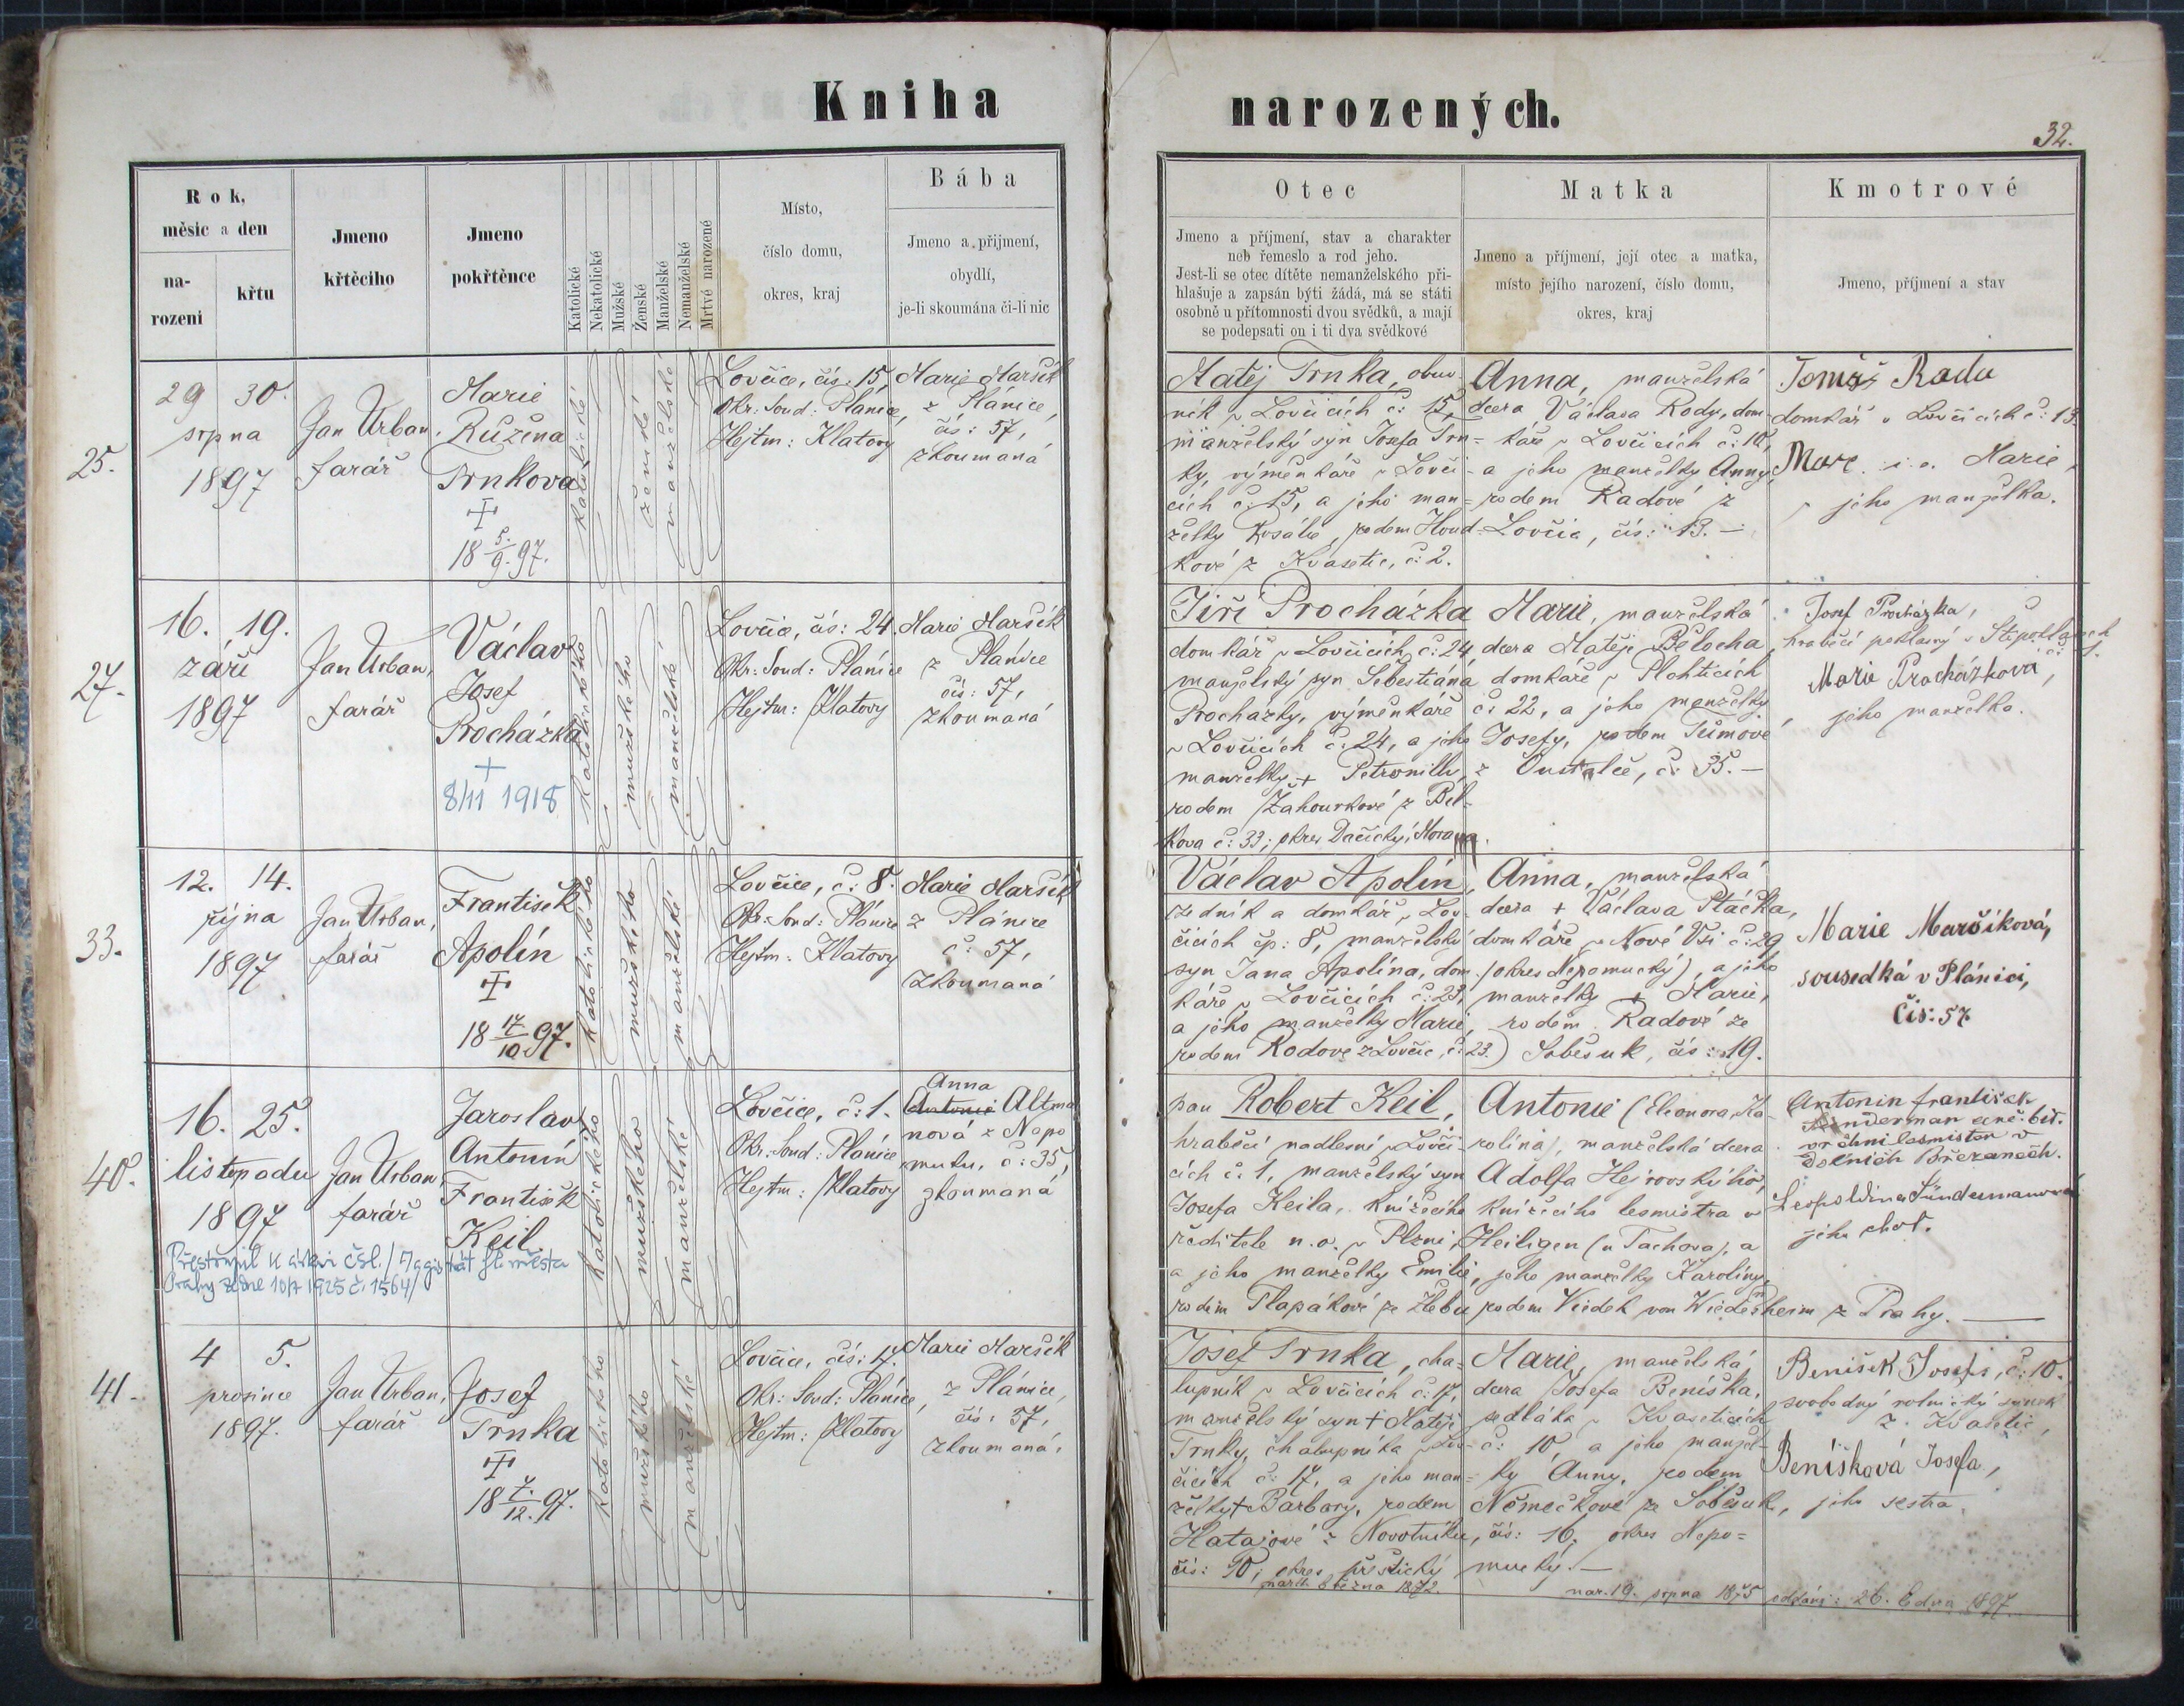 Kniha
narozených.
32.
Rok,
měsíc a den
na-
rozeni
křtu
Jmeno
křtěcího
Jmeno
pokřtěnce
Katolické
Nekatolické
Mužské
Ženské
Manželské
Nemanželské
Mrtvé narozené
Místo,
číslo domu,
okres, kraj
Bába
Jmeno a přijmení,
obydlí,
je-li skoumána či-li nic
Otec
Jmeno a příjmení, stav a charakter
neb řemeslo a rod jeho.
Jest-li se otec dítěte nemanželského při-
hlašuje a zapsán býti žádá, má se státi
osobně u přítomnosti dvou svědků, a mají
se podepsati on i ti dva svědkové
Matka
Jmeno a příjmení, její otec a matka,
místo jejího narození, číslo domu,
okres, kraj
Kmotrové
Jmeno, příjmení a stav
25.
29 30.
srpna
1897
Jan Urban,
farář
Marie
Růžena
Trnkova
18 5./9. 97.
katolické
ženské
manželské
Lovčice, čís. 15,
Okr: Soud: Plánice,
Hejtm: Klatovy
Marie Maršík
z Plánice,
čís: 57,
zkoumaná
Matěj Trnka, obuv-
ník v Lovčicích č: 15,
manželský syn Josefa Trn=
ky, výměnkáře v Lovči-
cích č. 15, a jeho man=
želky Rosalie, rodem Houd-
kové z Kvasetic, č: 2.
Anna, manželská
dcera Václava Rody, dom-
káře v Lovčicích č: 10,
a jeho manželky Anny,
rodem Radové z
Lovčic, čís: 13. —
Tomáš Rada
domkář v Lovčicích č: 13.
Marie,
jeho manželka.
27.
16. 19.
září
1897
Jan Urban,
farář
Václav
Josef
Procházka
+
8/11 1918
katolického
mužského
manželské
Lovčice, čís: 24.
Okr: Soud: Plánice
Hejtm: Klatovy
Marie Maršík
z Plánice
čís: 57,
zkoumaná
Jiří Procházka
domkář v Lovčicích, č: 24
manželský syn Šebestiána
Procházky, výměnkáře
v Lovčicích č. 24, a jeho
manželky + Petronilly,
rodem Žahourkové z Bel-
kova č: 33; okres Dačický, Morava.
Marie, manželská
dcera Matěje Bělocha,
domkáře v Plehticích
č: 22, a jeho manželky
Josefy, rodem Tůmové
z Oustalče, č: 35. —
Josef Procházka,
hraběcí poklasný
Marie Procházková,
jeho manželka.
33.
12. 14.
října
1897
Jan Urban,
farář
František
Apolín
18 17/10. 97.
katolického
mužského
manželské
Lovčice, č: 8.
Okr: Soud: Plánice
Hejtm: Klatovy
Marie Maršík
z Plánice
č: 57,
zkoumaná
Václav Apolín,
zedník a domkář v Lov-
čicích čp: 8, manželský
syn Jana Apolína, dom-
káře v Lovčicích č: 23,
a jeho manželky Marie,
rodem Rodové z Lovčic, č: 23.
Anna, manželská
dcera + Václava Ptáčka,
domkáře v Nové Vsi č: 29
(okres Nepomucký), a jeho
manželky + Marie,
rodem Radové ze
Soběsuk, čís: 19.
Marie Maršíková,
sousedká v Plánici,
Čís: 57.
40.
16. 25.
listopadu
1897
Jan Urban
farář
Jaroslav
Antonín
František
Keil
Přestoupil k církvi čsl. / Magistrát hl. města
Prahy ze dne 10/7 1925 č. 1564/
katolického
mužského
manželské
Lovčice, č: 1.
Okr. Soud: Plánice
Hejtm: Klatovy
Anna
Antonie Altma
nová z Nepo
muku, č: 35,
zkoumaná
pan Robert Keil,
hraběcí nadlesní v Lovči-
cích č. 1, manželský syn
Josefa Keila, knížecího
ředitele n. o. v Plzni,
a jeho manželky Emilie,
rodem Tlapákové ze Žlebu
Antonie (Eleonora, Ka-
rolina), manželská dcera
Adolfa Hejrovského,
knížecího lesmistra v
Heiligen (u Tachova), a
jeho manželky Karolíny,
rodem Wiedek von Wiedersheim z Prahy. —
Antonín František
vrchní lesmistr v
Dolních Březanech.
Leopoldina Sündermanova
jeho choť.
41.
4 5.
prosince
1897.
Jan Urban,
farář
Josef
Trnka
18 7./12. 97.
katolického
mužského
manželské
Lovčice, čís: 17.
Okr: Soud: Plánice,
Hejtm: Klatovy
Marie Maršík
z Plánice,
čís: 57,
zkoumaná.
Josef Trnka, cha=
lupník v Lovčicích č: 17,
manželský syn + Matěje
Trnky, chalupníka v Lov-
čicích č: 17, a jeho man=
želky + Barbory, rodem
Hatajové z Novotníku,
čís: 90, okres přeštický
nar. 8. března 1872.
Marie, manželská
dcera Josefa Beníška,
sedláka v Kvaseticích
č: 10, a jeho manžel-
ky Anny, rodem
Němečkové ze Soběsuk,
čís: 16, okres Nepo=
mucký. —
nar. 19. srpna 1875 oddáni: 26. ledna 1897.
Benišek Josef, č: 10.
svobodný rolnický synek
z Kvasetic,
Beníšková Josefa,
jeho sestra.